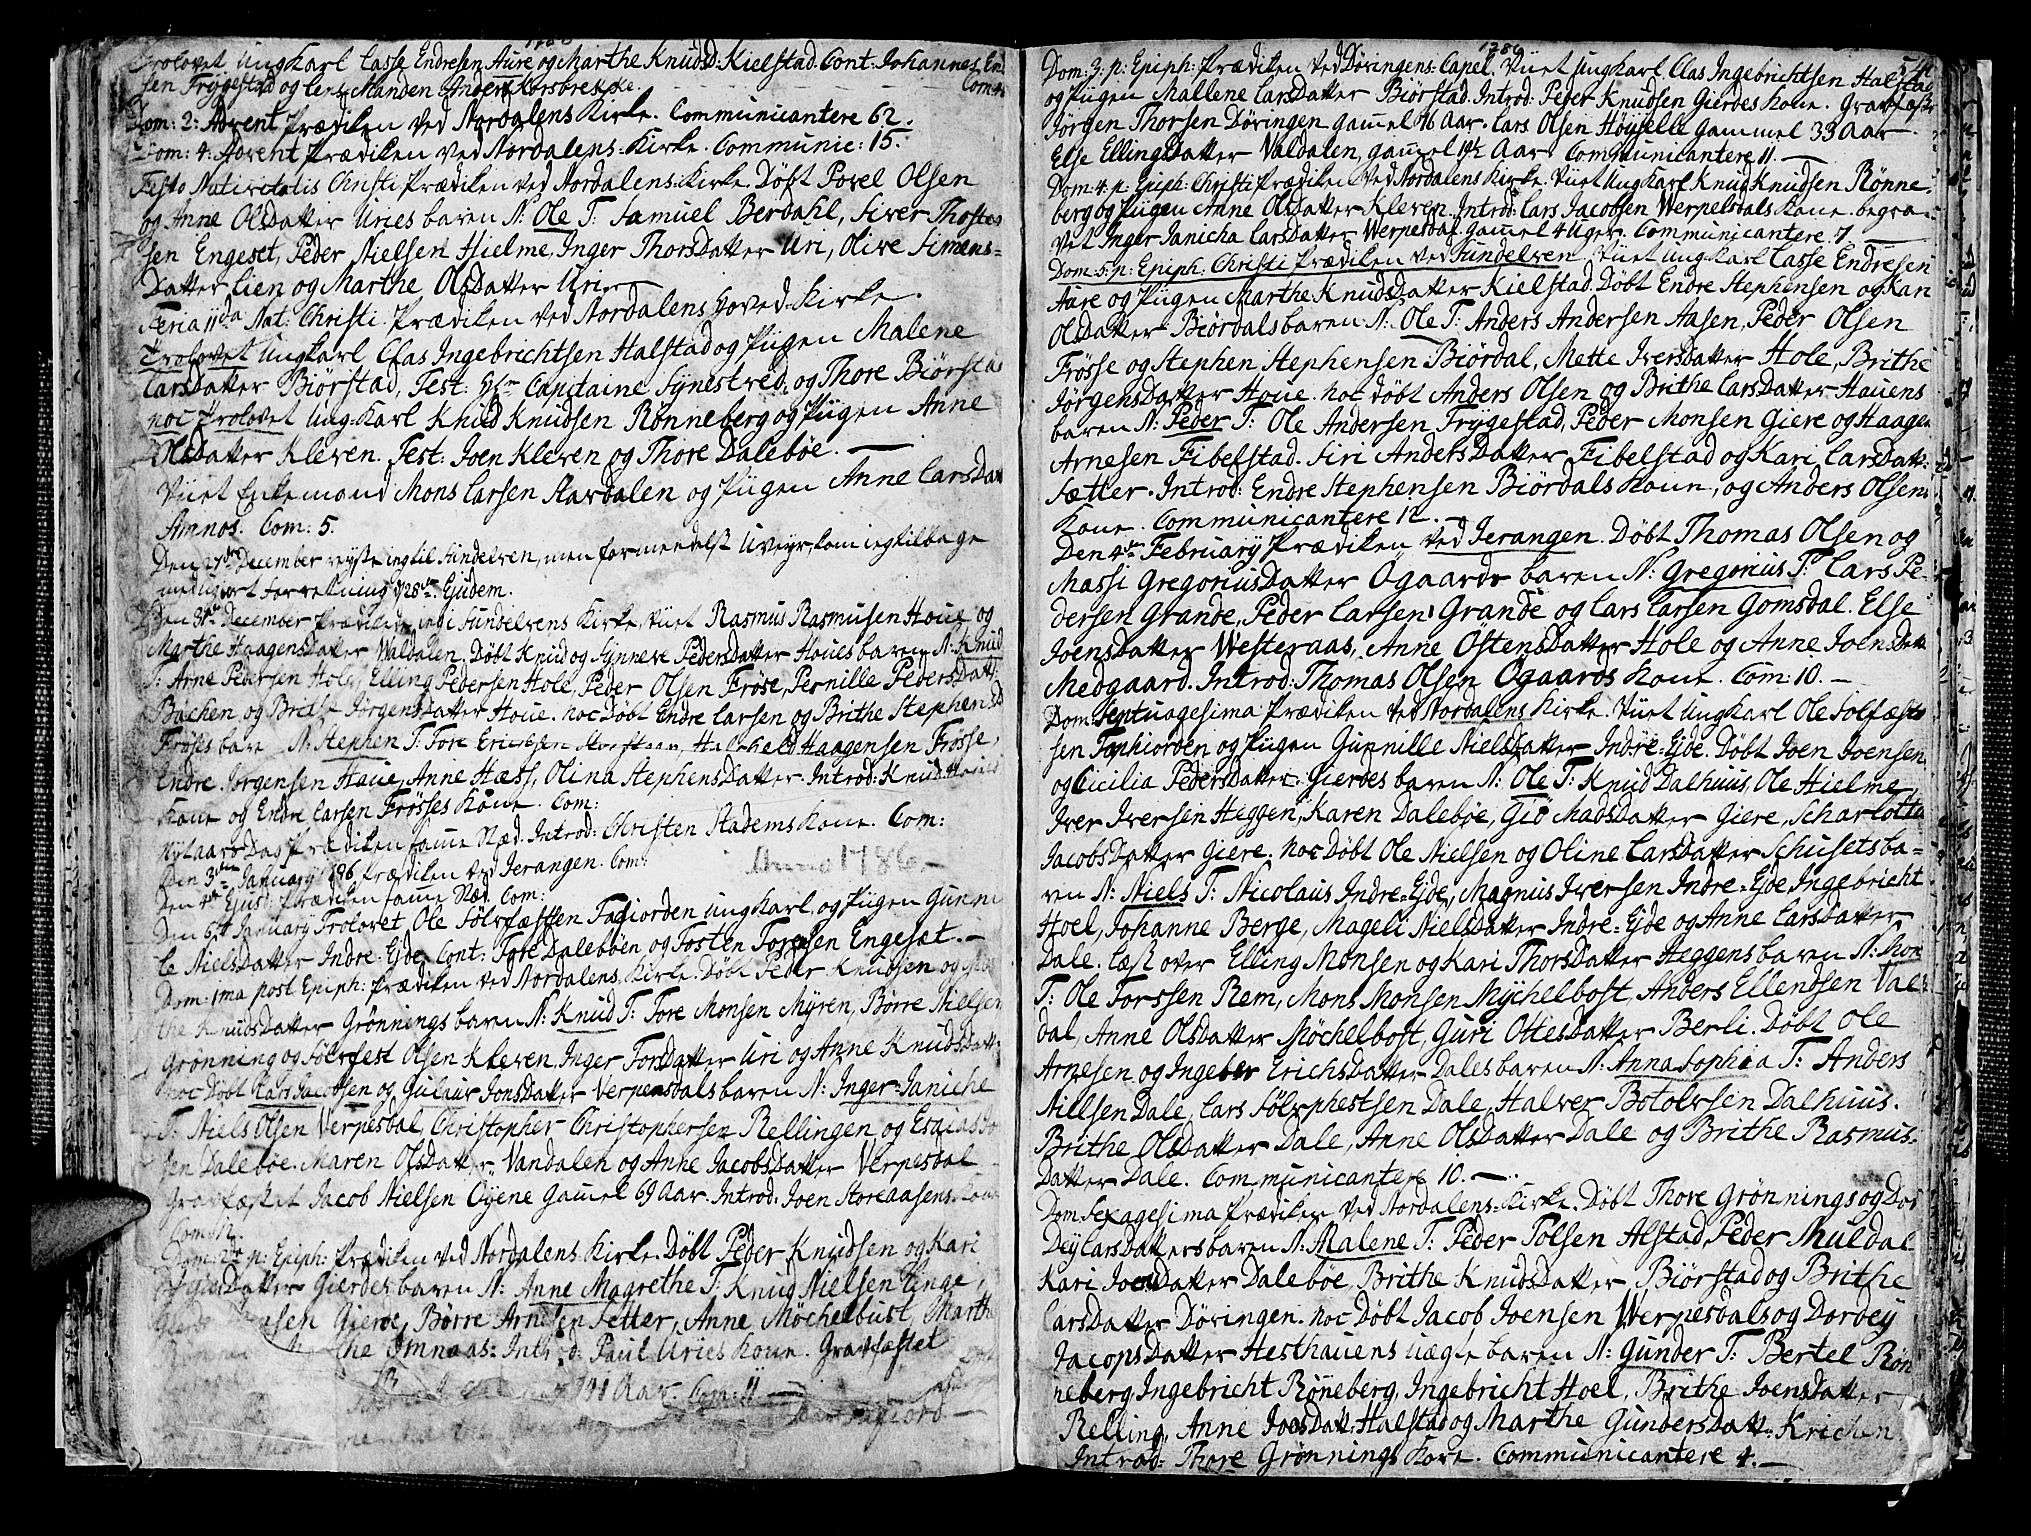 Trolovet Ungkarl Lasse Endresen Aure og Marthe Knudsd: Kielstad. Cont: Johannes En-
sen Frygestad og Lens-Manden Anders Korsbrekke. Com:
Dom: 2: Advent Prædiken ved Nordalens Kirke. Communicantere 62.
Dom: 4: Advent Prædiken ved Nordalens Kirke. Communic: 15.
Festo Nativitatis Christi Prædiken ved Nordalens Kirke. Døbt Povel Olsen
og Anne Olsdatter Uries baren N: Ole T: Samuel Berdahl, Siver Thostes
sen Engeset, Peder Nielsen Hielme, Inger Thorsdatter Uri, Olive Simens-
Datter Lien og Marthe Olsdatter Uri.
Feria IIda Nat: Christi Prædiken ved Nordalens Hoved-Kirke.
Trolovet Ungkarl Clas Ingebrichtsen Halstad og Pigen Malene
Larsdatter Biørstad, Test: Hr Capitaine Synestved, og Thore Biørstad
noc Trolovet Ungkarl Knud Knudsen Rønneberg og Pigen Anne
Olsdatter Kleven. Test: Joen Kleven og Thore Dalebøe.
Viiet Enkemand Mons Larsen Stavdalen og Pigen Anne Larsdat
Amnos. Com: 5.
Den 27de December reyste ieg til Sundelven, men formedelst Uveyr, kom ieg tilbage
med ugiort Forretning d 28de Ejusdem.
Den 31te December Prædiken ved Sundelvens Kirke, Viiet Rasmus Rasmusen Houe og
Marthe Haagensdatter Waldalen. Døbt Knud og Synneve Pedersdatter Houes baren N: Knud
T: Arne Pedersen Hole, Elling Pedersen Hole, Peder Olsen Frøse, Pernille Pedersdatt:
Bachen og Brite Jørgensdatter Houe. noc Døbt Endre Larsen og Brithe Stephensd
Frøses baren N: Stephen T: Tore Ericksen Haagensen Frøsse,
Endre Jørgensen Houe, Anne Hæss, Olina Stephensdatter. Introd: Knud Houes
Kone og Endre Larsen Frøsses Kone. Com:
Nytaars Dag Prædiken samme Stæd. Introd: Christen Stadems Kone. Com:
Anno 1786
Den 3die January 1786 Prædiken ved Jerangen. Com:
Den 4de Ejusd: Prædiken samme Stæd. Com:
Den 6te January Trolovet Ole Sølvfæstsen Tafiorden Ungkarl og Pigen Gunni
le Nielsdatter Indre-Ejde, Cont: Tore Dalebøen og Tosten Toresen Engesæt.
Dom: 1ma post Epiph: Prædiken ved Nordalens Kirke. Døbt Peder Knudsen og
the Knudsdatter Grønnings baren N: Knud T: Tore Monsen Myren, Børre Nielsen
Grønning og Sølvfest Olsen Kleven, Inger Torsdatter Uri og Anne Knudsdatt:
noc Døbt Lars Jacobsen og Gulaur Jonsdatter Verpesdals baren N: Inger-Janiche
T: Niels Olsen Verpesdal, Christopher Christophersen Rellingen og Esaias Jo
sen Dalebøe. Maren Olsdatter Vandalen og Anne Jacobsdatter Verpesdal
Gravfæstet Jacob Nielsen Oyene gamel 69 Aar. Introd: Joen Storeaasens Kone
Com: 12.
Dom: 2de p: Epiph: Prædiken ved Nordalens Kirke. Døbt Peder Knudsen og Kari
datter Gierdes baren N: Anne Magrethe T: Knud Nielsen Linge,
sen Gierde, Børre Arnesen Setter, Anne Møchelbust, Marth
Omnaas. Introd: Paul Uries Kone. Gravfæstet
Aar. Com: 11
1786
Dom: 3. p: Epiph: Prædiken ved Døringens Capel. Viiet Ungkarl Clas Ingebrichtsen Halstad
og Pigen Mallene Larsdatter Biørstad. Introd: Peder Knudsen Gierdes Kone. Gravfæst
Jørgen Thorsen Døringen gamel 76 Aar. Lars Olsen Høyselle gammel 33 Aar
Else Ellingsdatter Valdalen, gamel 19½ Aar. Communicantere 11.
Dom: 4. p: Epiph: Christi Prædiken ved Nordalens Kirke. Viiet Ungkarl Knud Knudsen Rønne-
berg og Pigen Anne Olsdatter Kleven. Introd: Lars Jacobsen Werpesdals Kone. begra-
vet Inger Janicha Larsdatter Werpesdal gamel 4 Uger. Communicantere 7
Dom: 5. p: Epiph. Christi Prædiken ved Sundelven Viiet Ungkarl Lasse Endresen
Aure og Pigen Marthe Knudsdatter Kielstad. Døbt Endre Stephensen og Kari
Olsdatter Biørdals baren N: Ole T: Anders Andersen Aasen, Peder Olsen
Frøsse og Stephen Stephensen Biørdal, Mette Iversdatter Hole, Brithe
Jørgensdatter Houe. noc døbt Anders Olsen og Brithe Larsdatter Hauens
baren N: Peder T: Ole Andersen Frygestad, Peder Monsen Giere og Haagen
Arnesen Fibelstad. Siri Andersdatter Fibelstad og Kari Larsdatt:
Sætter. Introd: Endre Stephensen Biørdals Kone, og Anders Olsens
Kone. Communicantere 12.
Den 4de February Prædiken ved Jerangen. Døbt Thomas Olsen og
Massi Gregoriusdatter Øgaards baren N: Gregorius T: Lars Pe-
dersen Grande, Peder Larsen Grande og Lars Larsen Gomsdal. Else
Joensdatter Westeraas, Anne Østensdatter Hole og Anne Joensdatt
Medgaard. Introd: Thomas Olsen Øgaards Kone. Com: 10.
Dom: Septuagesima Prædiken ved Nordalens Kirke. Viiet Ungkarl Ole Solfæst
sen Taphiorden og Pigen Gunnille Nielsdatter Indre-Ejde. Døbt Joen Joensen
og Cicilia Pedersdatter Gierdes baren N: Ole T: Knud Dalhuus, Ole Hielme
Iver Iversen Heggen, Karen Dalebøe, Giø Madsdatter Giere, Scharlotta
Jacobsdatter Giere. noc Døbt Ole Nielsen og Oline Larsdatter Schusetsba-
ren N: Niels T: Nicolaus Indre-Ejde, Magnus Iversen Indre-Ejde Ingebricht
Hoel, Johanne Berge, Mageli Nielsdatter Indre-Ejde og Anne Larsdatter
Dale. læst over Elling Monsen og Kari Thorsdatter Heggens baren N: Thor
T: Ole Torssen Rem, Mons Monsen Mychelbost, Anders Ellendsen Val-
dal, Anne Olsdatter Møchelbost, Guri Ottesdatter Berli. Døbt Ole
Arnesen og Ingeber Erichsdatter Dales baren N: Anna Sophia T: Anders
Nillsen Dale, Lars Sølvphestsen Dale, Halver Botolvsen Dalhuus.
Brithe Olsdatter Dale, Anne Olsdatter Dale og Brithe Rasmus-
Datter Dale. Communicantere 10.
Dom: Sexagesima Prædiken ved Nordalens Kirke. Døbt Thore Grønnings og Dor
Dey Larsdatters baren N: Malene T: Peder Polsen Alstad, Peder Muldal
Kari Joensdatter Dalebøe, Brithe Knudsdatter Biørstad og Brithe
Larsdatter Døringen. noc Døbt Jacob Joensen Werpesdals og Dordey
Jacopsdatter Hesthauens uægte baren N: Gunder T: Bertel Røn
neberg Ingebricht Røneberg, Ingebricht Hoel, Brithe Joensdatter
Relling, Anne Joesdatt: Halstad og Marthe Gundersdatt: Krichen.
Introd: Thore Grønnings Kone. Communicantere 4.